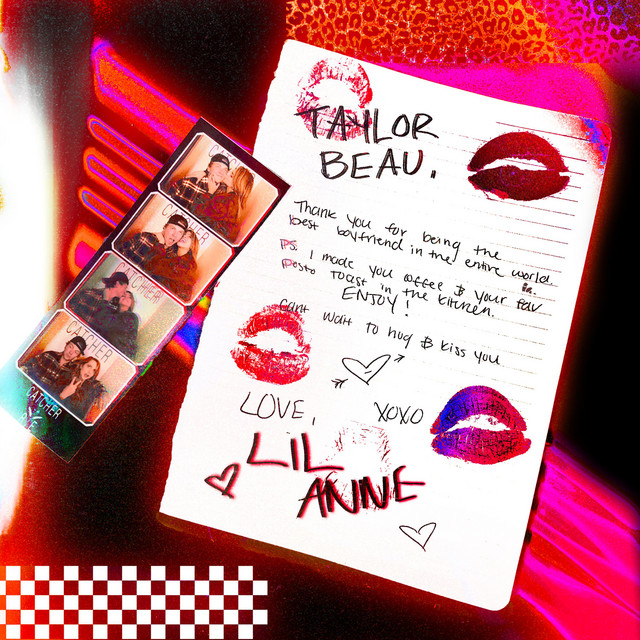 TAYLOR
BEAU.
Thank you for being the
best boyfriend in the entire world.
PS: I made you coffee & your fav
pesto toast in the kitchen.
ENJOY!
Cant wait to hug & kiss you
LOVE, XOXO
LIL
ANNE
CATCHER
CATCHER
CATCHER
CATCHER